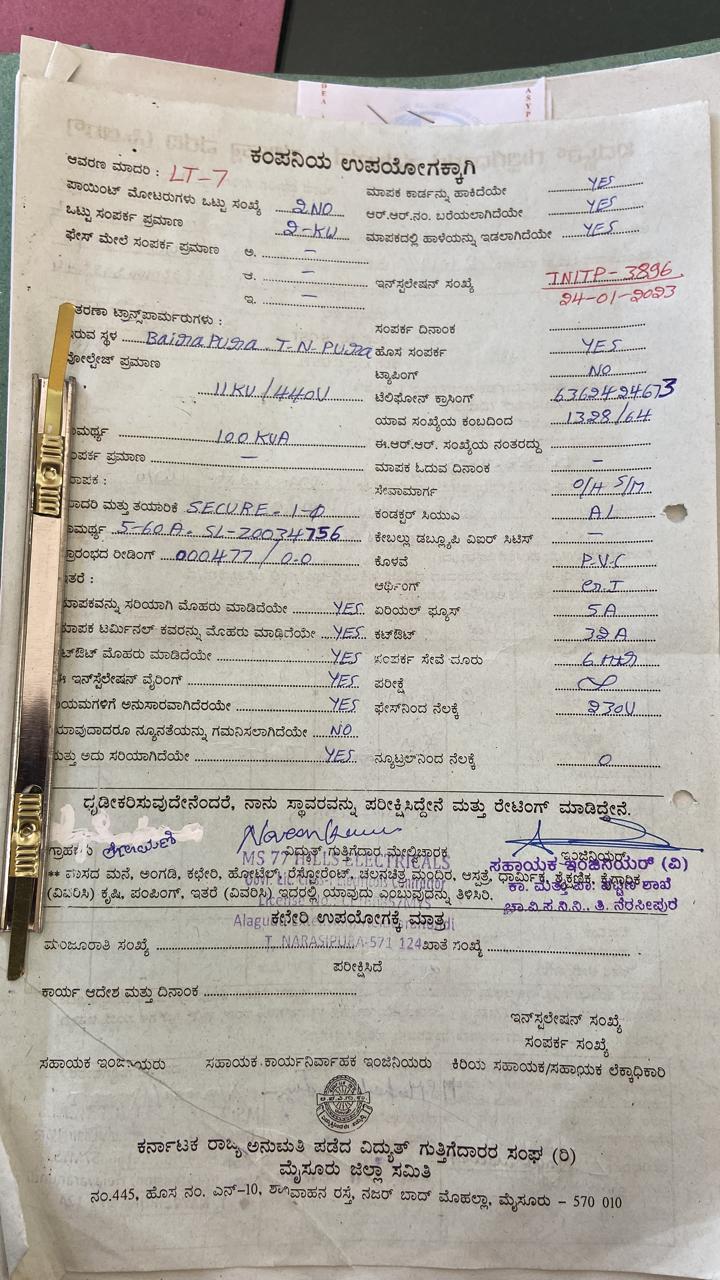 ಕಂಪನಿಯ ಉಪಯೋಗಕ್ಕಾಗಿ
ಆವರಣ ಮಾದರಿ : LT-7
ಮಾಪಕ ಕಾರ್ಡನ್ನು ಹಾಕಿದೆಯೇ YES
ಪಾಯಿಂಟ್ ಮೋಟರುಗಳು ಒಟ್ಟು ಸಂಖ್ಯೆ 2NO
ಆರ್.ಆರ್.ನಂ. ಬರೆಯಲಾಗಿದೆಯೇ YES
ಒಟ್ಟು ಸಂಪರ್ಕ ಪ್ರಮಾಣ 2-KW
ಮಾಪಕದಲ್ಲಿ ಹಾಳೆಯನ್ನು ಇಡಲಾಗಿದೆಯೇ YES
ಫೇಸ್ ಮೇಲೆ ಸಂಪರ್ಕ ಪ್ರಮಾಣ ಅ. –
ಆ. –
ಇ. –
ಇನ್‌ಸ್ಟಲೇಷನ್ ಸಂಖ್ಯೆ TNITP-3896
24-01-2023
ತರಣಾ ಟ್ರಾನ್ಸ್‌ಫಾರ್ಮರುಗಳು :
ಸಂಪರ್ಕ ದಿನಾಂಕ
ಇರುವ ಸ್ಥಳ T.N PURA
ಹೊಸ ಸಂಪರ್ಕ YES
ವೋಲ್ಟೇಜ್ ಪ್ರಮಾಣ
ಟ್ಯಾಪಿಂಗ್ NO
11KV/440V
ಟೆಲಿಫೋನ್ ಕ್ರಾಸಿಂಗ್ 6362424673
ಯಾವ ಸಂಖ್ಯೆಯ ಕಂಬದಿಂದ 1328/64
ಾಮರ್ಥ್ಯ 100KVA
ಈ.ಆರ್.ಆರ್. ಸಂಖ್ಯೆಯ ನಂತರದ್ದು
ಂಪರ್ಕ ಪ್ರಮಾಣ –
ಮಾಪಕ ಓದುವ ದಿನಾಂಕ –
ಾಪಕ :
ಸೇವಾಮಾರ್ಗ O/H S/M
ಾದರಿ ಮತ್ತು ತಯಾರಿಕೆ SECURE-1-Φ
ಕಂಡಕ್ಟರ್ ಸಿಯುಎ AL
ಾಮರ್ಥ್ಯ 5-60A. SL-Z0034756
ಕೇಬಲ್ಲು ಡಬ್ಲ್ಯೂಪಿ ವಿಐರ್ ಸಿಟಿಸ್ –
ಪ್ರಾರಂಭದ ರೀಡಿಂಗ್ 000477/0.0
ಕೊಳವೆ P.V.C
ಇತರೆ :
ಆರ್ಥಿಂಗ್ G.I
ಮಾಪಕವನ್ನು ಸರಿಯಾಗಿ ಮೊಹರು ಮಾಡಿದೆಯೇ YES
ಏರಿಯಲ್ ಫ್ಯೂಸ್ 5A
ಮಾಪಕ ಟರ್ಮಿನಲ್ ಕವರನ್ನು ಮೊಹರು ಮಾಡಿದೆಯೇ YES
ಕಟ್‌ಔಟ್ 32A
ಟ್‌ಔಟ್ ಮೊಹರು ಮಾಡಿದೆಯೇ YES
ಸಂಪರ್ಕ ಸೇವೆ ದೂರು 6 Mtr
ಈ ಇನ್‌ಸ್ಟಲೇಷನ್ ವೈರಿಂಗ್ YES
ಪರೀಕ್ಷೆ
ಯಮಗಳಿಗೆ ಅನುಸಾರವಾಗಿದೆರಯೇ YES
ಫೇಸ್‌ನಿಂದ ನೆಲಕ್ಕೆ 230V
ಯಾವುದಾದರೂ ನ್ಯೂನತೆಯನ್ನು ಗಮನಿಸಲಾಗಿದೆಯೇ NO
ಮತ್ತು ಅದು ಸರಿಯಾಗಿದೆಯೇ YES
ನ್ಯೂಟ್ರಲ್‌ನಿಂದ ನೆಲಕ್ಕೆ 0
ದೃಡೀಕರಿಸುವುದೇನೆಂದರೆ, ನಾನು ಸ್ಥಾವರವನ್ನು ಪರೀಕ್ಷಿಸಿದ್ದೇನೆ ಮತ್ತು ರೇಟಿಂಗ್ ಮಾಡಿದ್ದೇನೆ.
ಗ್ರಾಹಕರು
ವಿದ್ಯುತ್ ಗುತ್ತಿಗೆದಾರ ಮೇಲ್ವಿಚಾರಕ
ಇಂಜಿನಿಯರ್
MS 77 HILLS ELECTRICALS
ಸಹಾಯಕ ಇಂಜಿನಿಯರ್ (ವಿ)
** ವಾಸದ ಮನೆ, ಅಂಗಡಿ, ಕಛೇರಿ, ಹೋಟೆಲ್, ರೆಸ್ಟೋರೆಂಟ್, ಚಲನಚಿತ್ರ ಮಂದಿರ, ಆಸ್ಪತ್ರೆ, ಧಾರ್ಮಿಕ, ಶೈಕ್ಷಣಿಕ, ಕೈಗಾರಿಕ
(ವಿವರಿಸಿ) ಕೃಷಿ, ಪಂಪಿಂಗ್, ಇತರೆ (ವಿವರಿಸಿ) ಇದರಲ್ಲಿ ಯಾವುದು ಎಂಬುವುದನ್ನು ತಿಳಿಸಿರಿ.
ಚಾ.ವಿ.ಸ.ನಿ.ನಿ., ತಿ. ನರಸೀಪುರ
ಕಛೇರಿ ಉಪಯೋಗಕ್ಕೆ ಮಾತ್ರ
T. NARASIPURA-571 124
ಮಂಜೂರಾತಿ ಸಂಖ್ಯೆ
ಖಾತೆ ಸಂಖ್ಯೆ
ಪರೀಕ್ಷಿಸಿದೆ
ಕಾರ್ಯ ಆದೇಶ ಮತ್ತು ದಿನಾಂಕ
ಇನ್‌ಸ್ಟಲೇಷನ್ ಸಂಖ್ಯೆ
ಸಂಪರ್ಕ ಸಂಖ್ಯೆ
ಸಹಾಯಕ ಇಂಜಿನಿಯರು
ಸಹಾಯಕ ಕಾರ್ಯನಿರ್ವಾಹಕ ಇಂಜಿನಿಯರು
ಕಿರಿಯ ಸಹಾಯಕ/ಸಹಾಯಕ ಲೆಕ್ಕಾಧಿಕಾರಿ
ಕರ್ನಾಟಕ ರಾಜ್ಯ ಅನುಮತಿ ಪಡೆದ ವಿದ್ಯುತ್ ಗುತ್ತಿಗೆದಾರರ ಸಂಘ (ರಿ)
ಮೈಸೂರು ಜಿಲ್ಲಾ ಸಮಿತಿ
ನಂ.445, ಹೊಸ ನಂ. ಎನ್-10, ಶಾಲಿವಾಹನ ರಸ್ತೆ, ನಜರ್ ಬಾದ್ ಮೊಹಲ್ಲಾ, ಮೈಸೂರು – 570 010